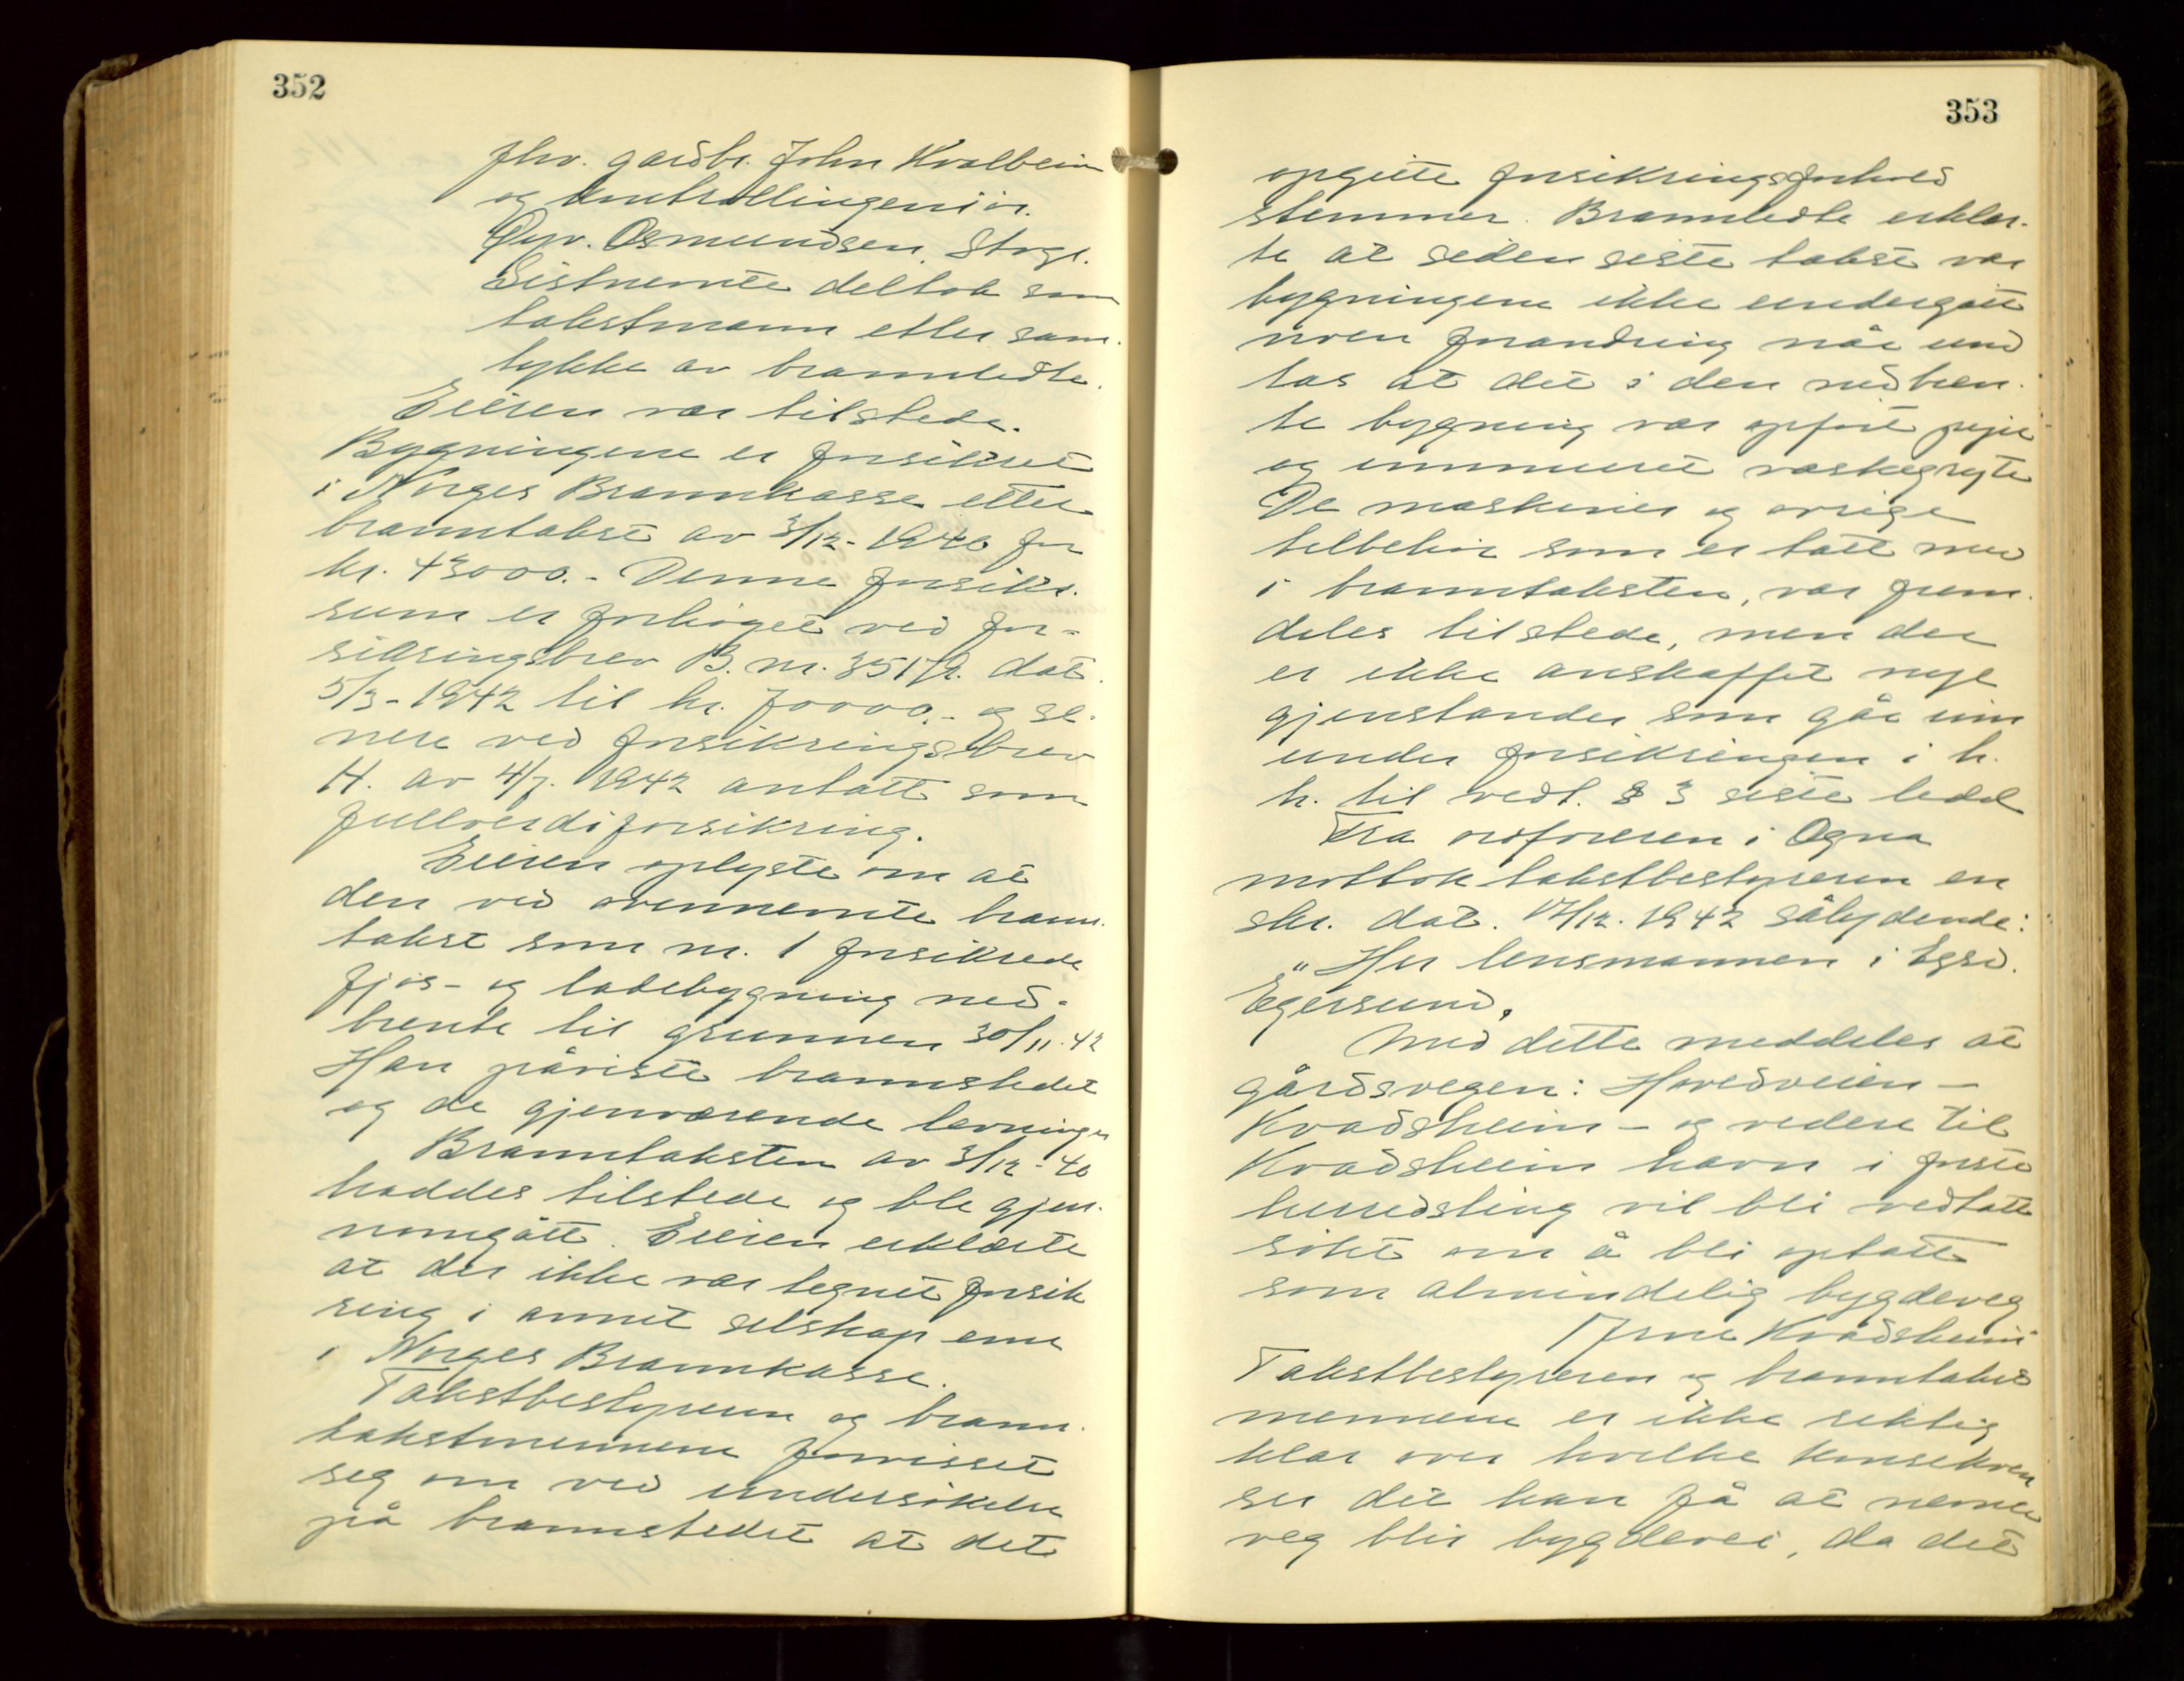 352
fhv. gardbr. John Kvalbein
og kontrollingeniør.
Øyv. Osmundsen, Stvgr.
Sistnemte deltok som
takstmann etter sam-
tykke av brannledte.
Eieren var tilstede.
Bygningene er forsikret
i Norges Brannkasse etter
branntakst av 3/12-1940 for
kr. 43000.- Denne forsikr.
sum er forhöget ved for-
sikringsbrev B. nr. 3517 dat.
5/3-1942 til kr. 70000.- og se-
nere ved forsikringsbrev
H. av 4/7. 1942 antatt som
fullverdiforsikring.
Eieren oplyste om at
den ved ovennemte brann-
takst som nr. 1 forsikrede
fjös- og ladebygning ned-
brente til grunnen 30/11.42
Han påviste brannstedet
og de gjenværende levninger
Branntaksten av 3/12-40
haddes tilstede og ble gjen-
nomgått. Eieren erklærte
at der ikke var tegnet forsik
ring i annet selskap enn
i Norges Brannkasse.
Takstbestyreren og brann-
takstmennene forvisset
seg om ved undersökelse
på brannstedet at det
353
opgitte forsikringsforhold
stemmer. Brannledte erklær-
te at siden siste takst var
bygningene ikke undergått
noen forandring når und
tas at det i den nedbren-
te bygning var opfört pipe
og innmuret vaskegryte
De maskiner og övrige
tilbehör som er tatt med
i branntaksten, var frem-
deles tilstede, men der
er ikke anskaffet nye
gjenstander som går inn
under forsikringen i h.
h. til vedt. § 3 siste ledd
Fra ordföreren i Ogna
mottok takstbestyreren en
skr. dat. 17/12. 1942 sålydende:
"Herr lensmannen i Egsd.
Egersund.
Med dette meddeles at
gårdsvegen: Hovedveien -
Kvadsheim - og videre til
Kvadsheim havn i förste
herredsting vil bli vedtatt
sökt om å bli optatt
som almindelig bygdeveg
Kvadsheim
Takstbestyreren og branntakst
mennene er ikke riktig
klar over hvilke konsekven
ser det kan få at nemte
veg blir bygdevei, da det